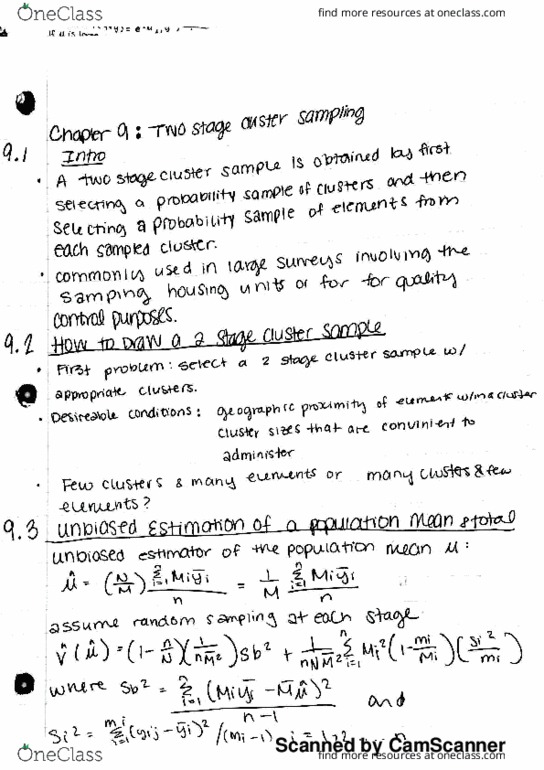 OneClass
find more resources at oneclass.com
Chapter 9: Two stage cluster sampling
9.1 Intro
• A two stage cluster sample is obtained by first
selecting a probability sample of clusters and then
selecting a probability sample of elements from
each sampled cluster.
• commonly used in large surveys involving the
samping housing units or for for quality
control purposes.
9.2 How to Draw a 2 stage cluster sample
• First problem: select a 2 stage cluster sample w/
appropriate clusters.
• Desireable conditions: geographic proximity of elements w/in a cluster
cluster sizes that are convinient to
administer
• Few clusters & many elements or many clusters & few
elements?
9.3 unbiased Estimation of a population Mean & total
unbiased estimator of the population mean μ:
μ̂ = (N/M) Σⁿᵢ₌₁ Mᵢȳᵢ / n = 1/M̄ Σⁿᵢ₌₁ Mᵢȳᵢ / n
assume random sampling at each stage
V̂(μ̂) = (1-n/N)(1/nM̄²)Sb² + 1/nNM̄² Σⁿᵢ₌₁ Mᵢ²(1-mᵢ/Mᵢ)(Sᵢ²/mᵢ)
where Sb² = Σⁿᵢ₌₁ (Mᵢȳᵢ - M̄μ̂)² / n-1 and
Sᵢ² = Σ (yᵢⱼ-ȳᵢ)² /(mᵢ-1)
Scanned by CamScanner
OneClass
find more resources at oneclass.com